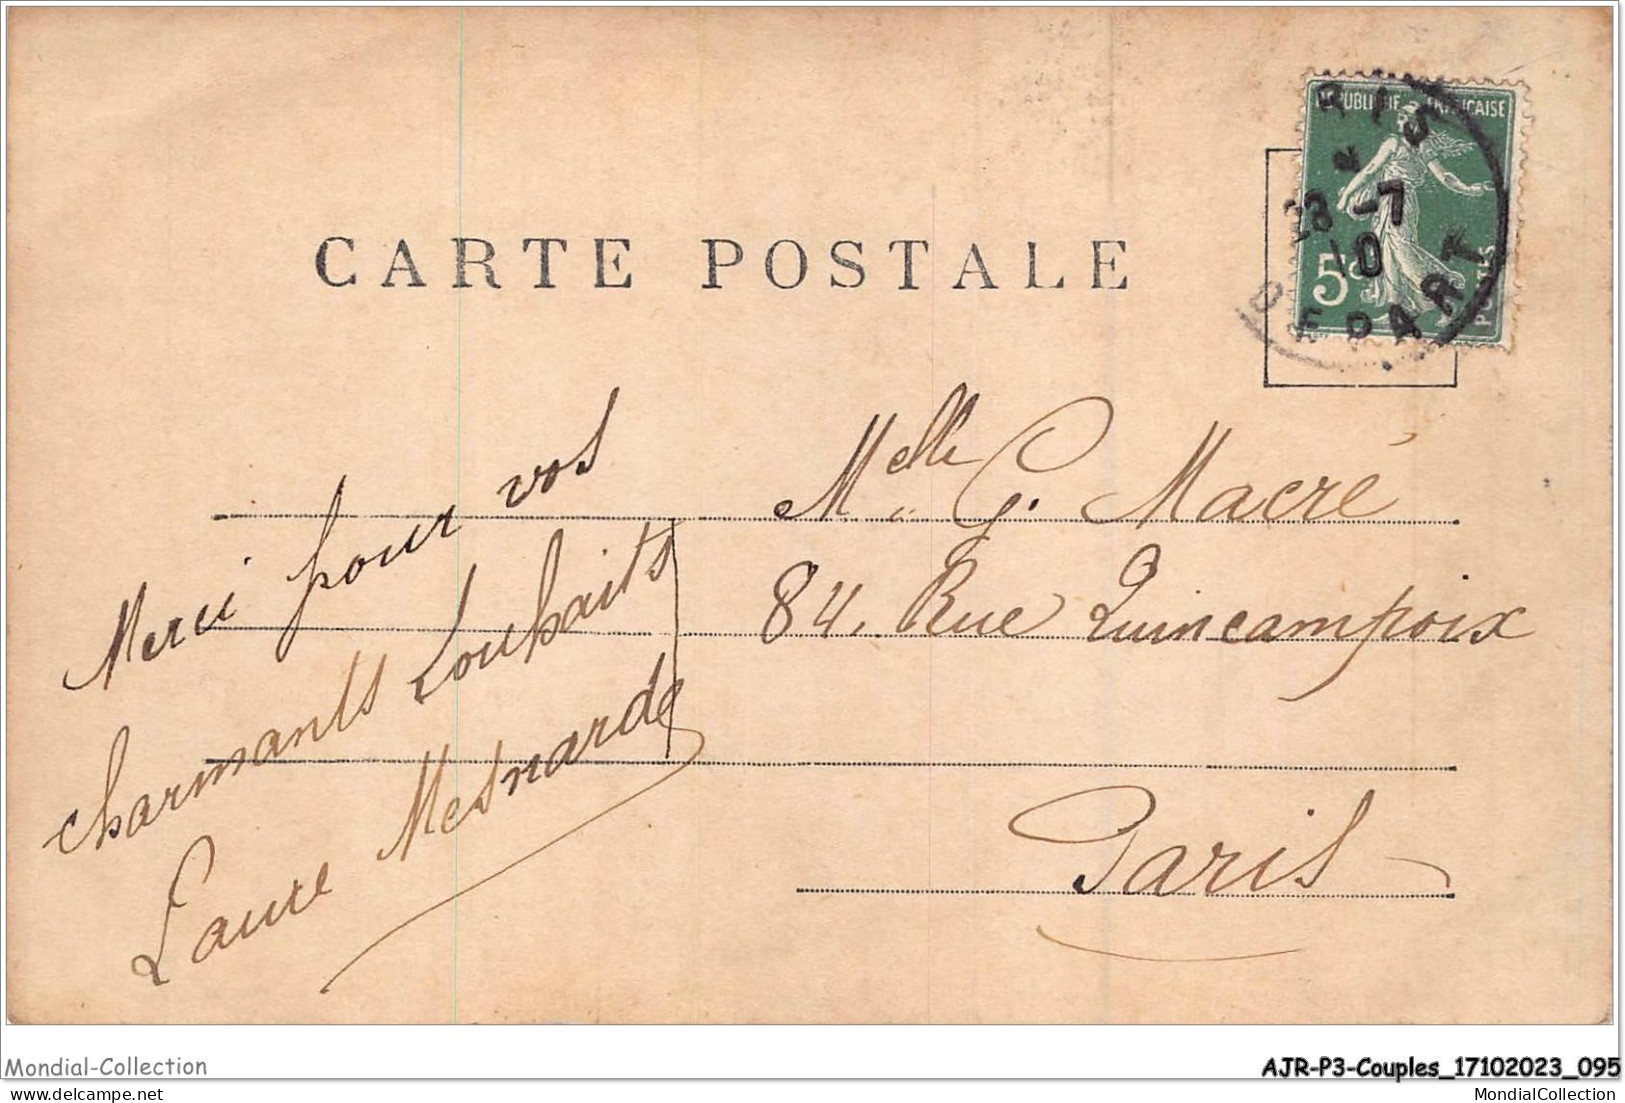 CARTE POSTALE
RÉPUBLIQUE FRANÇAISE
5c
POSTES
RIS
28 -7
10
DEPART
Merci pour vos
charmants souhaits
Laure Mesnarde
Melle G. Macré
84, Rue Quincampoix
Paris
Mondial-Collection
AJR-P3-Couples_17102023_095
MondialCollection
MondialCollection